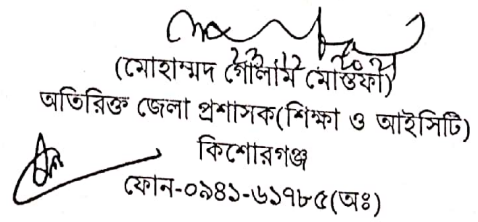 23.12.2021
(মোহাম্মদ গোলাম মোস্তফা)
অতিরিক্ত জেলা প্রশাসক(শিক্ষা ও আইসিটি)
কিশোরগঞ্জ
ফোন-০৯৪১-৬১৭৮৫(অঃ)